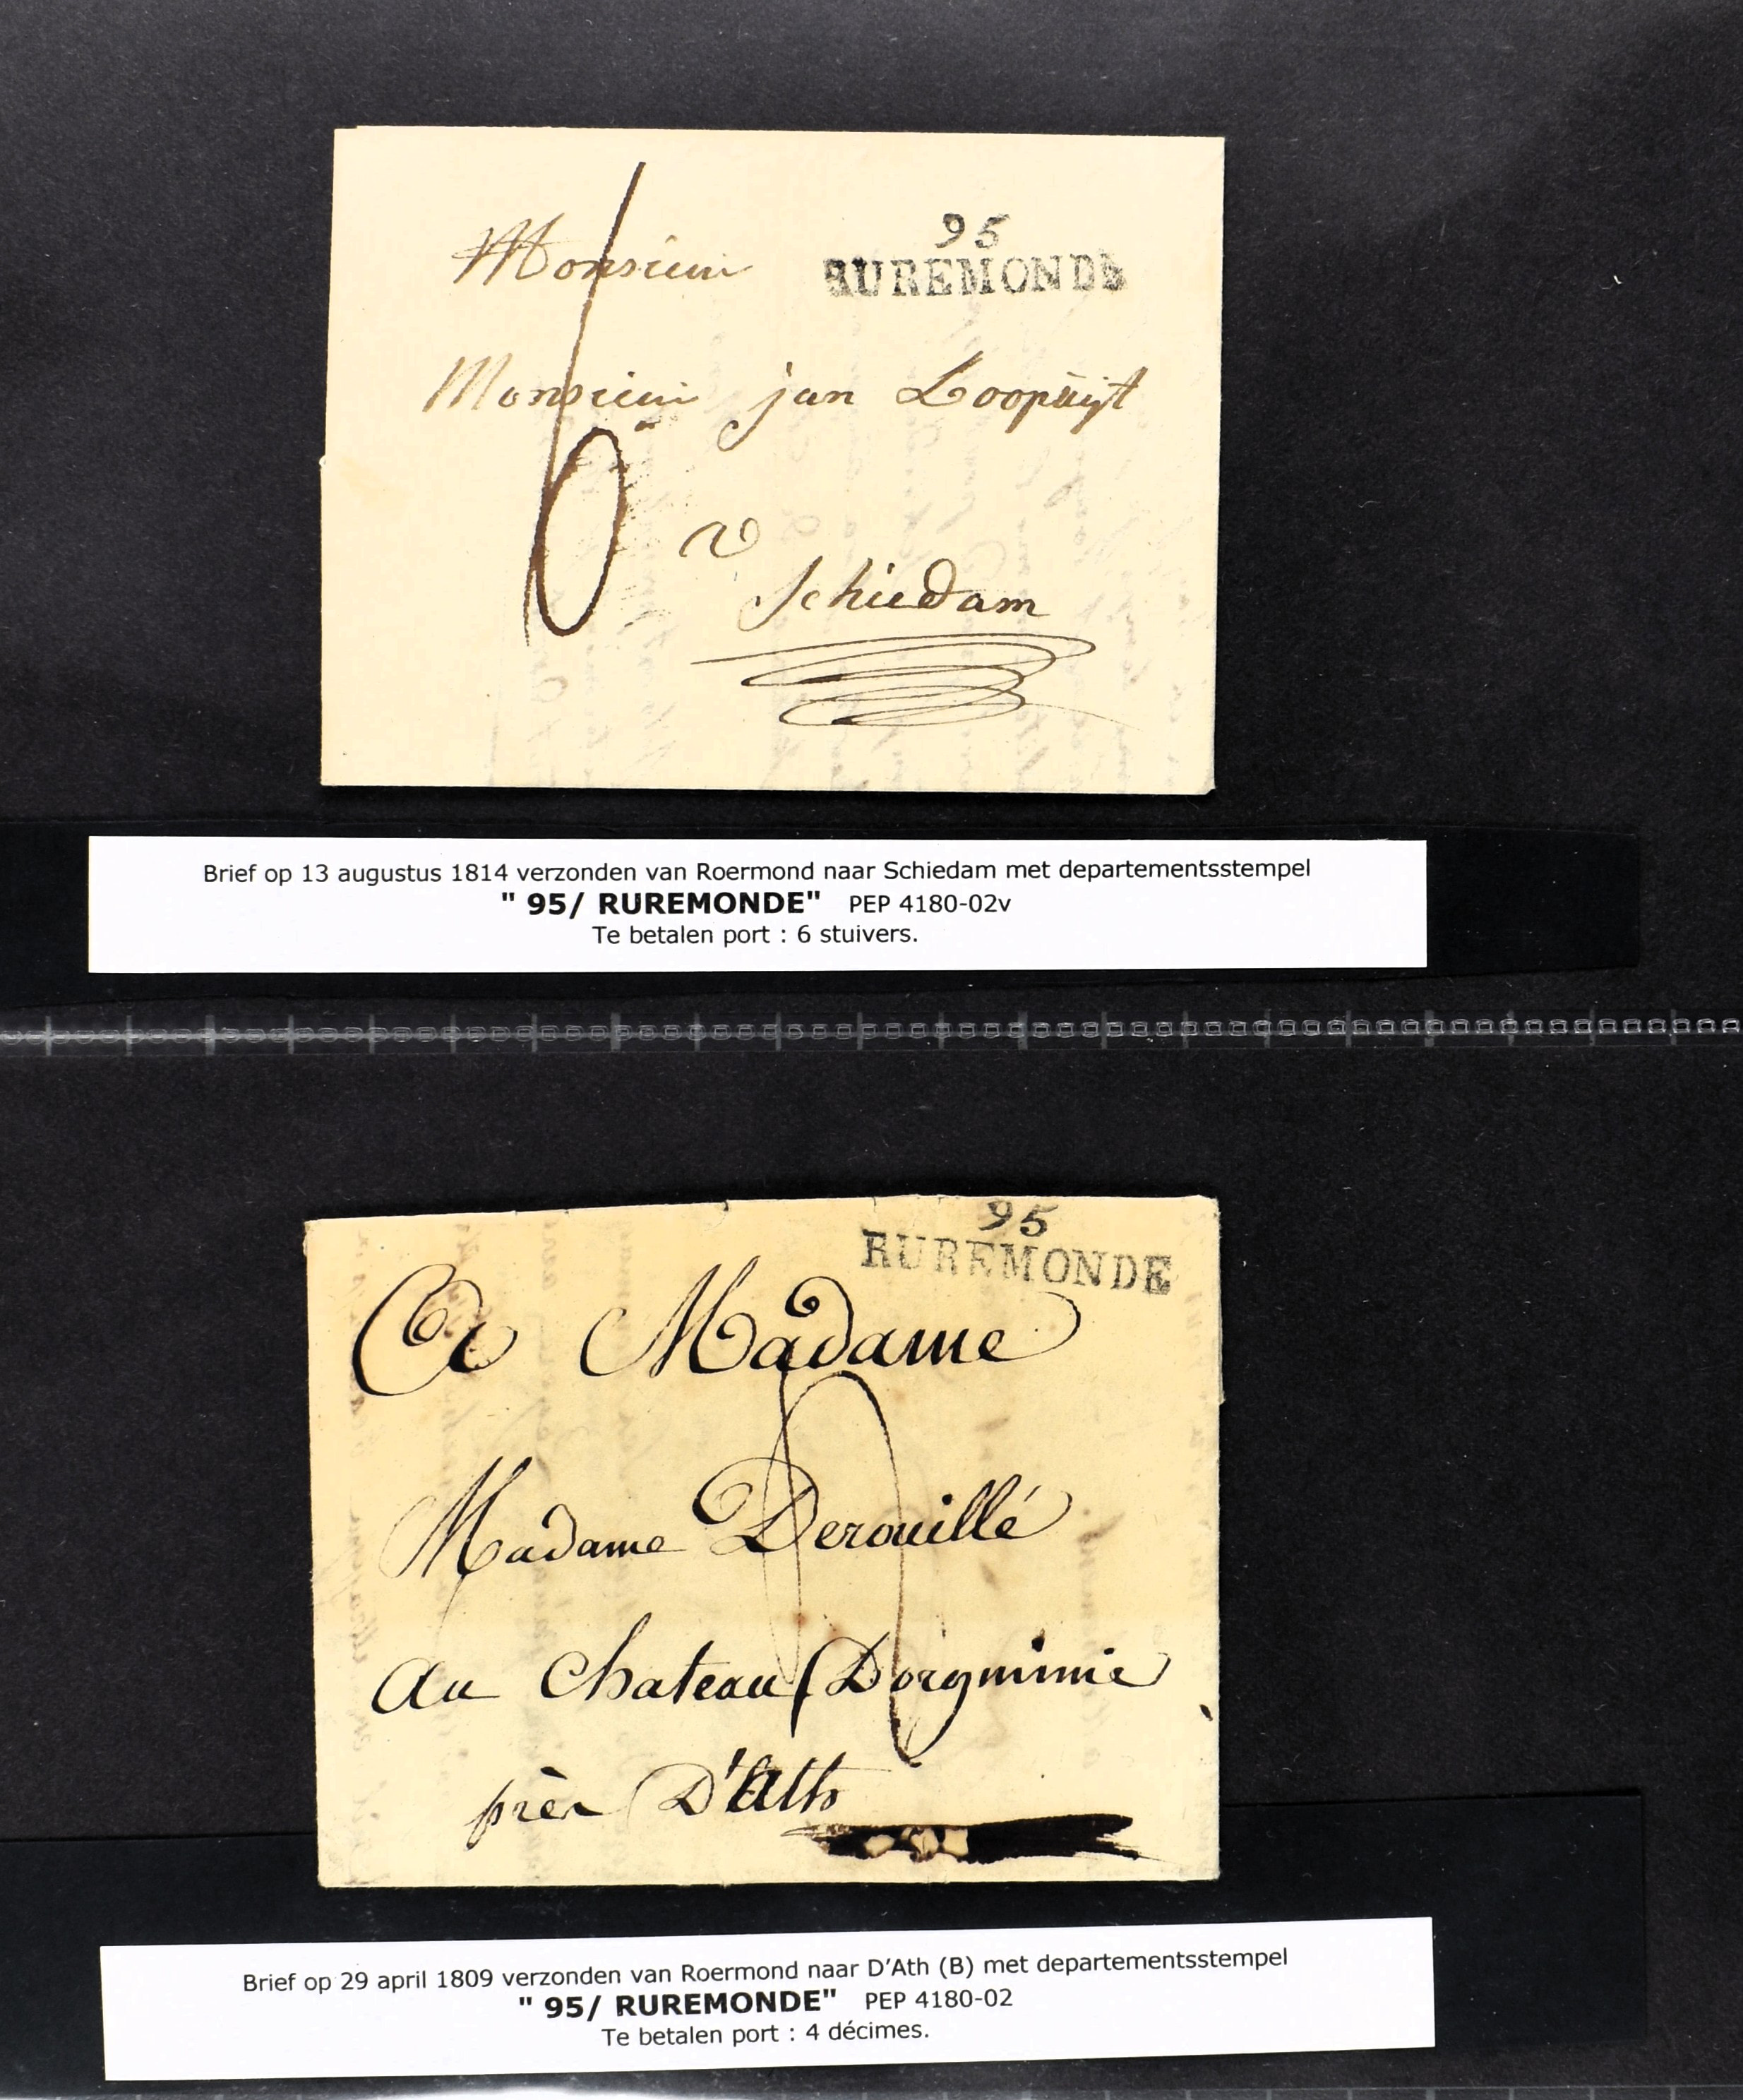 95
RUREMONDE
Monsieur
Monsieur jan Loopuijt
6
a
Schiedam
Brief op 13 augustus 1814 verzonden van Roermond naar Schiedam met departementsstempel
" 95/ RUREMONDE" PEP 4180-02v
Te betalen port : 6 stuivers.
95
RUREMONDE
A Madame
4
Madame Derouillé
au Chateau
près D'Ath
Brief op 29 april 1809 verzonden van Roermond naar D'Ath (B) met departementsstempel
" 95/ RUREMONDE" PEP 4180-02
Te betalen port : 4 décimes.